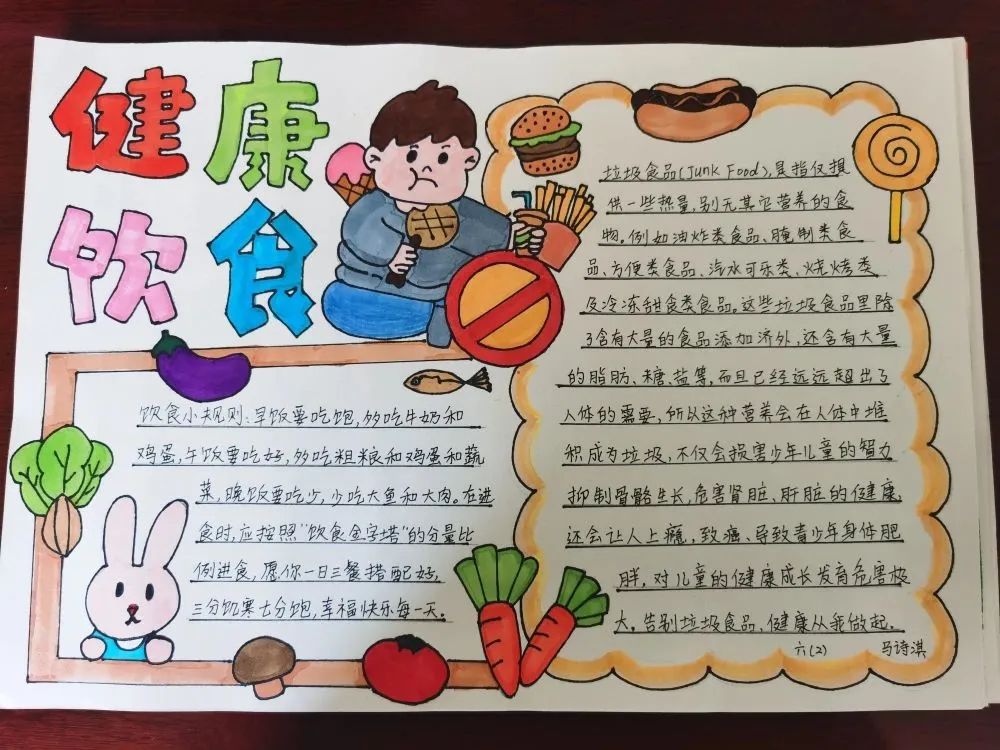 健康
饮食
饮食小规则:早饭要吃饱,多吃牛奶和
鸡蛋,午饭要吃好,多吃粗粮和鸡蛋和蔬
菜,晚饭要吃少,少吃大鱼和大肉。在进
食时,应按照"饮食金字塔"的分量比
例进食,愿你一日三餐搭配好,
三分饥寒七分饱,幸福快乐每一天。
垃圾食品(Junk Food),是指仅提
供一些热量,别无其它营养的食
物。例如油炸类食品、腌制类食
品、方便类食品、汽水可乐类、烧烤类
及冷冻甜食类食品。这些垃圾食品里除
了含有大量的食品添加济外,还含有大量
的脂肪、糖、盐等,而且已经远远超出了
人体的需要,所以这种营养会在人体中堆
积成为垃圾,不仅会损害少年儿童的智力
抑制骨骼生长,危害肾脏、肝脏的健康.
还会让人上瘾,致癌、导致青少年身体肥
胖,对儿童的健康成长发育危害极
大。告别垃圾食品,健康从我做起.
六(2) 马诗淇